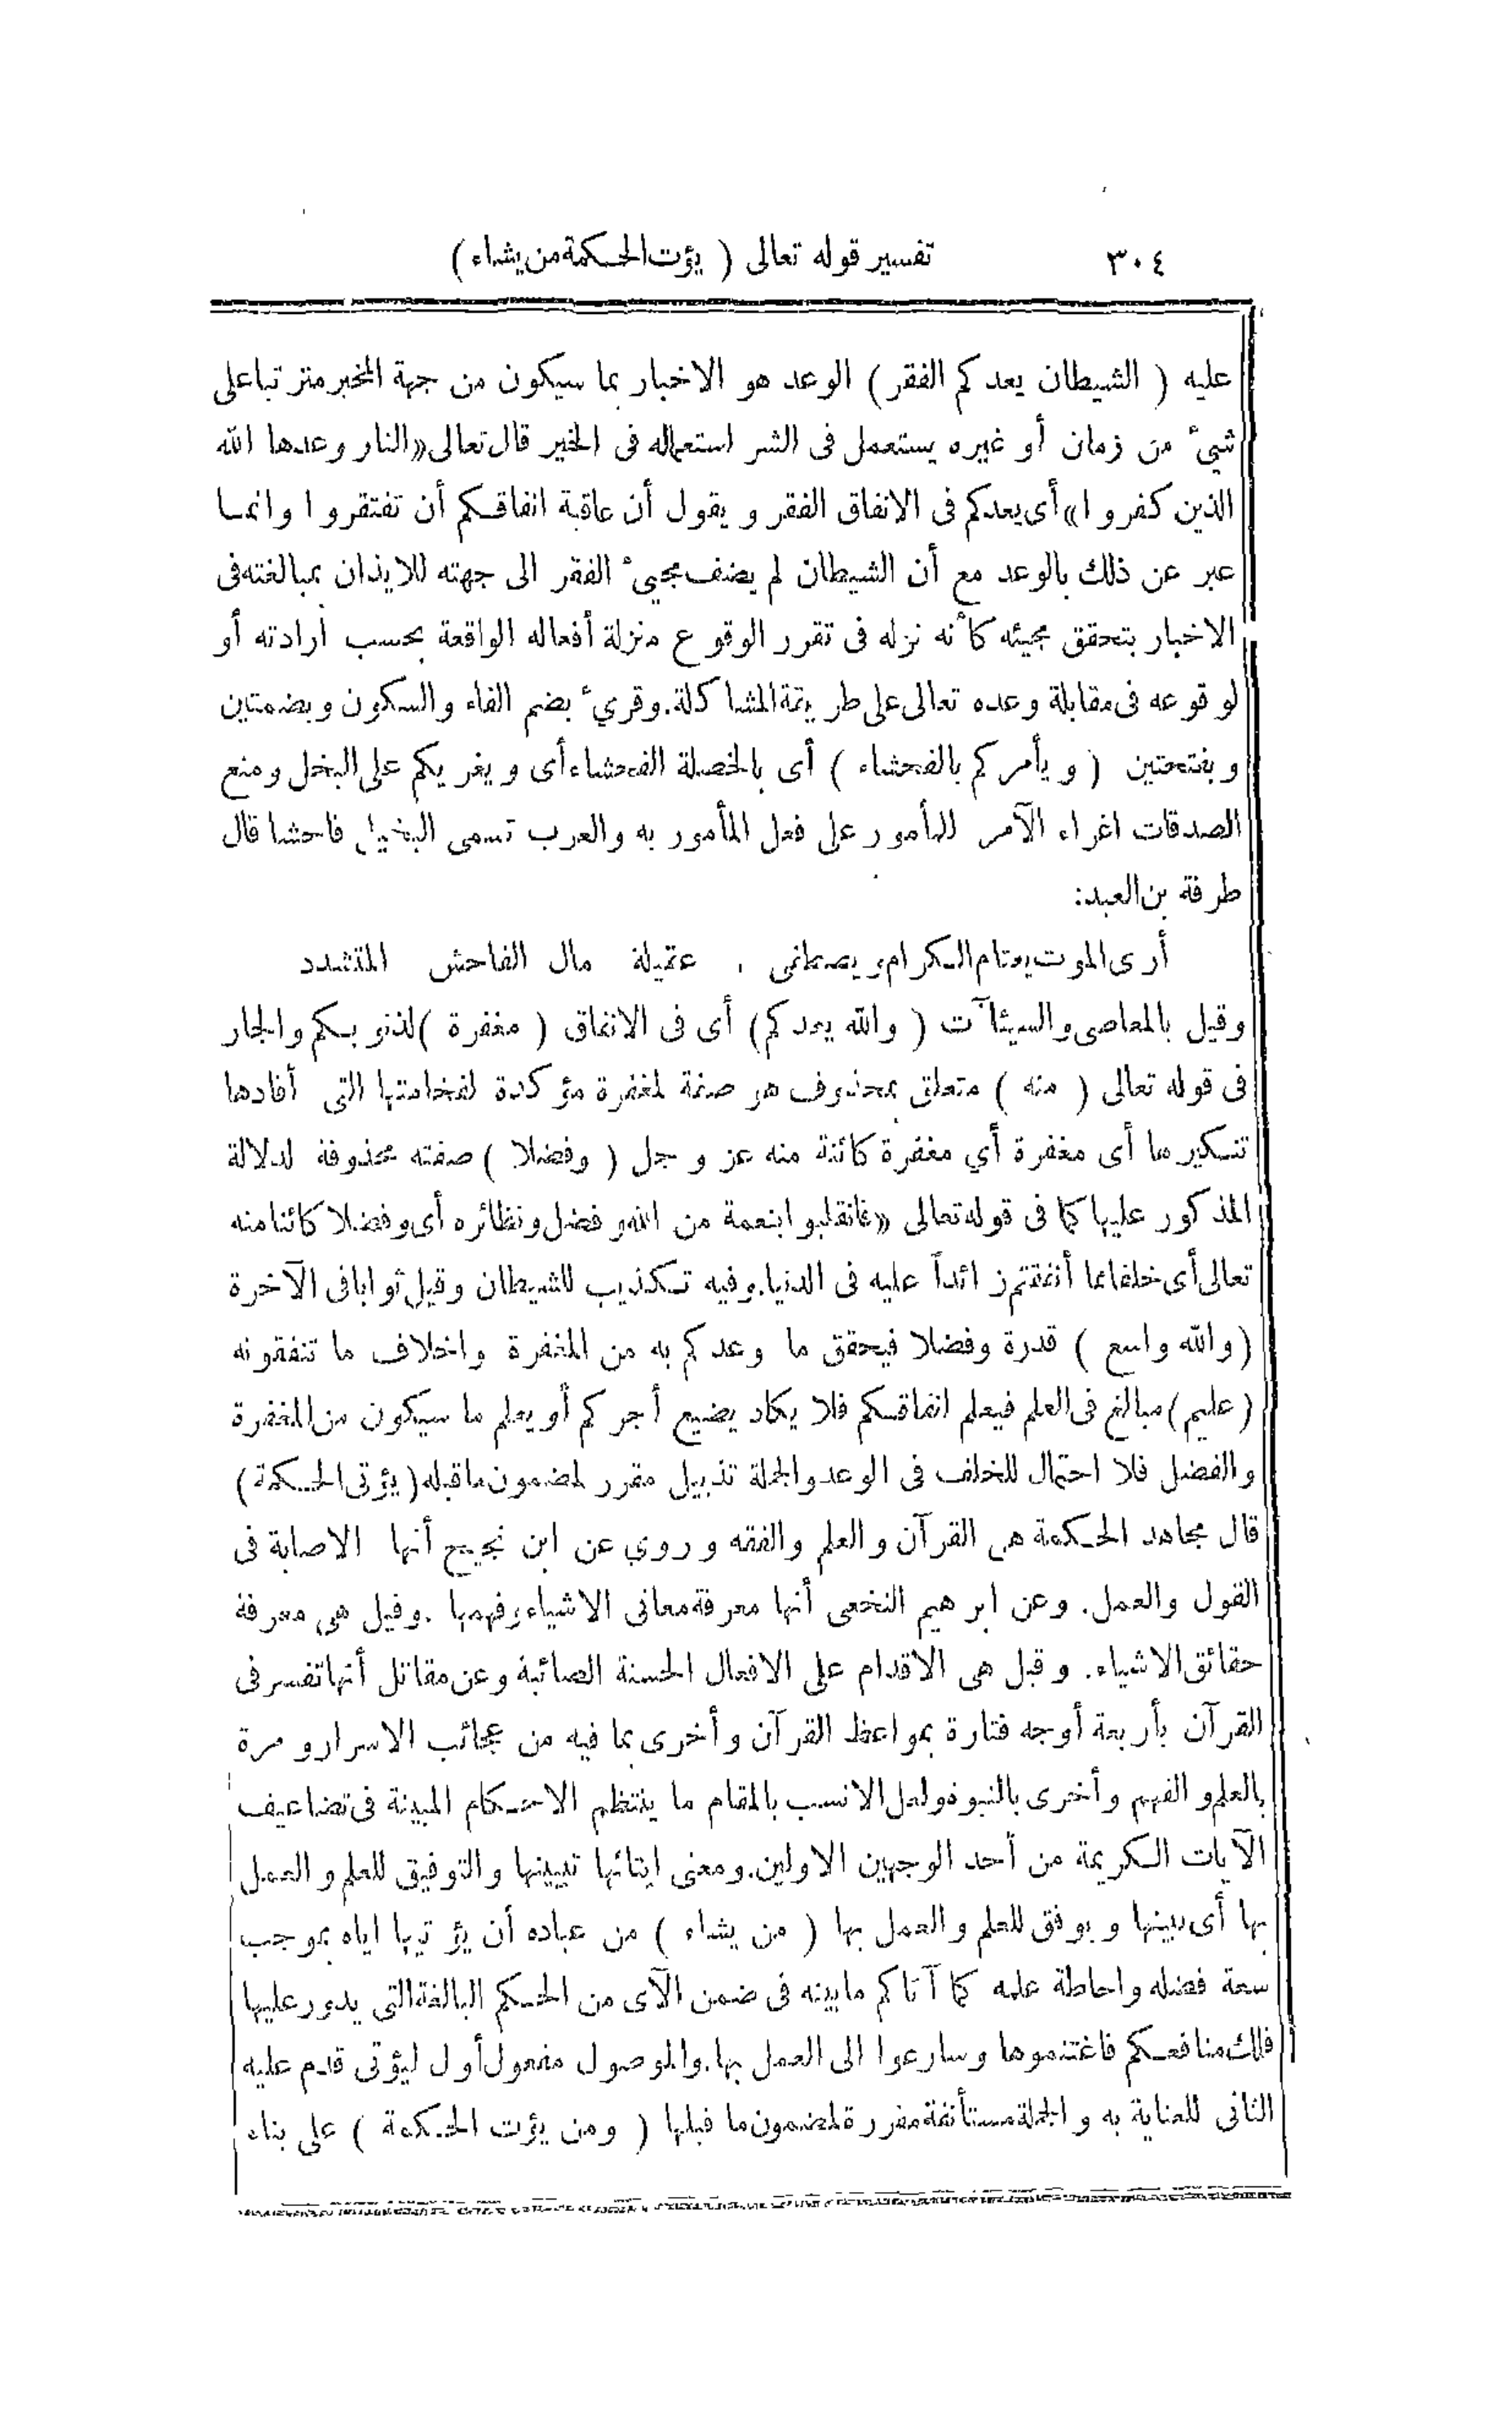 ٣٠٤ تفسير قوله تعالى ( يؤت الحكمة من يشاء )
عليه ( الشيطان يعدكم الفقر ) الوعد هو الاخبار بما سيكون من جهة المخبر مترتبا على
شيء من زمان أو غيره يستعمل فى الشر استعماله فى الخير قال تعالى «النار وعدها الله
الذين كفروا» أى يعدكم فى الانفاق الفقر ويقول أن عاقبة انفاقكم أن تفتقروا وانما
عبر عن ذلك بالوعد مع أن الشيطان لم يضف مجيء الفقر الى جهته للايذان بمبالغته فى
الاخبار بتحقق مجيئه كأنه نزله فى تقرر الوقوع منزلة أفعاله الواقعة بحسب ارادته أو
لوقوعه فى مقابلة وعده تعالى على طريقة المشاكلة. وقرىء بضم الفاء والسكون وبضمتين
وبفتحتين ( ويأمركم بالفحشاء ) أى بالخصلة الفحشاء أى ويغريكم على البخل ومنع
الصدقات اغراء الآمر للمأمور على فعل المأمور به والعرب تسمى البخيل فاحشا قال
طرفة بن العبد:
أرى الموت يعتام الكرام ويصطفى . عقيلة مال الفاحش المتشدد
وقيل بالمعاصى والسيئآت ( والله يعدكم) أى فى الانفاق ( مغفرة )لذنوبكم والجار
فى قوله تعالى ( منه ) متعلق بمحذوف هو صفة لمغفرة مؤكدة لفخامتها التى أفادها
تنكيرها أى مغفرة أي مغفرة كائنة منه عز وجل ( وفضلا ) صفته محذوفة لدلالة
المذكور عليها كما فى قوله تعالى «فانقلبوا بنعمة من الله وفضل ونظائره أى وفضلا كائنا منه
تعالى أى خلفا مما أنفقتم زائداً عليه فى الدنيا. وفيه تكذيب للشيطان وقيل ثوابا فى الآخرة
(والله واسع ) قدرة وفضلا فيحقق ما وعدكم به من المغفرة واخلاف ما تنفقونه
(عليم) مبالغ فى العلم فيعلم انفاقكم فلا يكاد يضيع أجركم أو يعلم ما سيكون من المغفرة
والفضل فلا احتمال للخلف فى الوعد والجملة تذييل مقرر لمضمون ما قبله (يؤتى الحكمة)
قال مجاهد الحكمة هى القرآن والعلم والفقه وروي عن ابن نجيح أنها الاصابة فى
القول والعمل. وعن ابرهيم النخعى أنها معرفة معانى الاشياء وفهمها .وقيل هى معرفة
حقائق الاشياء. وقيل هى الاقدام على الافعال الحسنة الصائبة وعن مقاتل أنها تفسر فى
القرآن بأربعة أوجه فتارة بمواعظ القرآن وأخرى بما فيه من عجائب الاسرار ومرة
بالعلم والفهم وأخرى بالنبوة ولعل الانسب بالمقام ما ينتظم الاحكام المبينة فى تضاعيف
الآيات الكريمة من أحد الوجهين الاولين. ومعنى ايتائها تبيينها والتوفيق للعلم والعمل
بها أى يبينها ويوفق للعلم والعمل بها ( من يشاء ) من عباده أن يؤتيها اياه بموجب
سعة فضله واحاطة علمه كما آتاكم ما بينه فى ضمن الآى من الحكم البالغة التى يدور عليها
فلك منافعكم فاغتنموها وسارعوا الى العمل بها. والموصول مفعول أول ليؤتى قدم عليه
الثانى للعناية به والجملة مستأنفة مقررة لمضمون ما قبلها ( ومن يؤت الحكمة ) على بناء